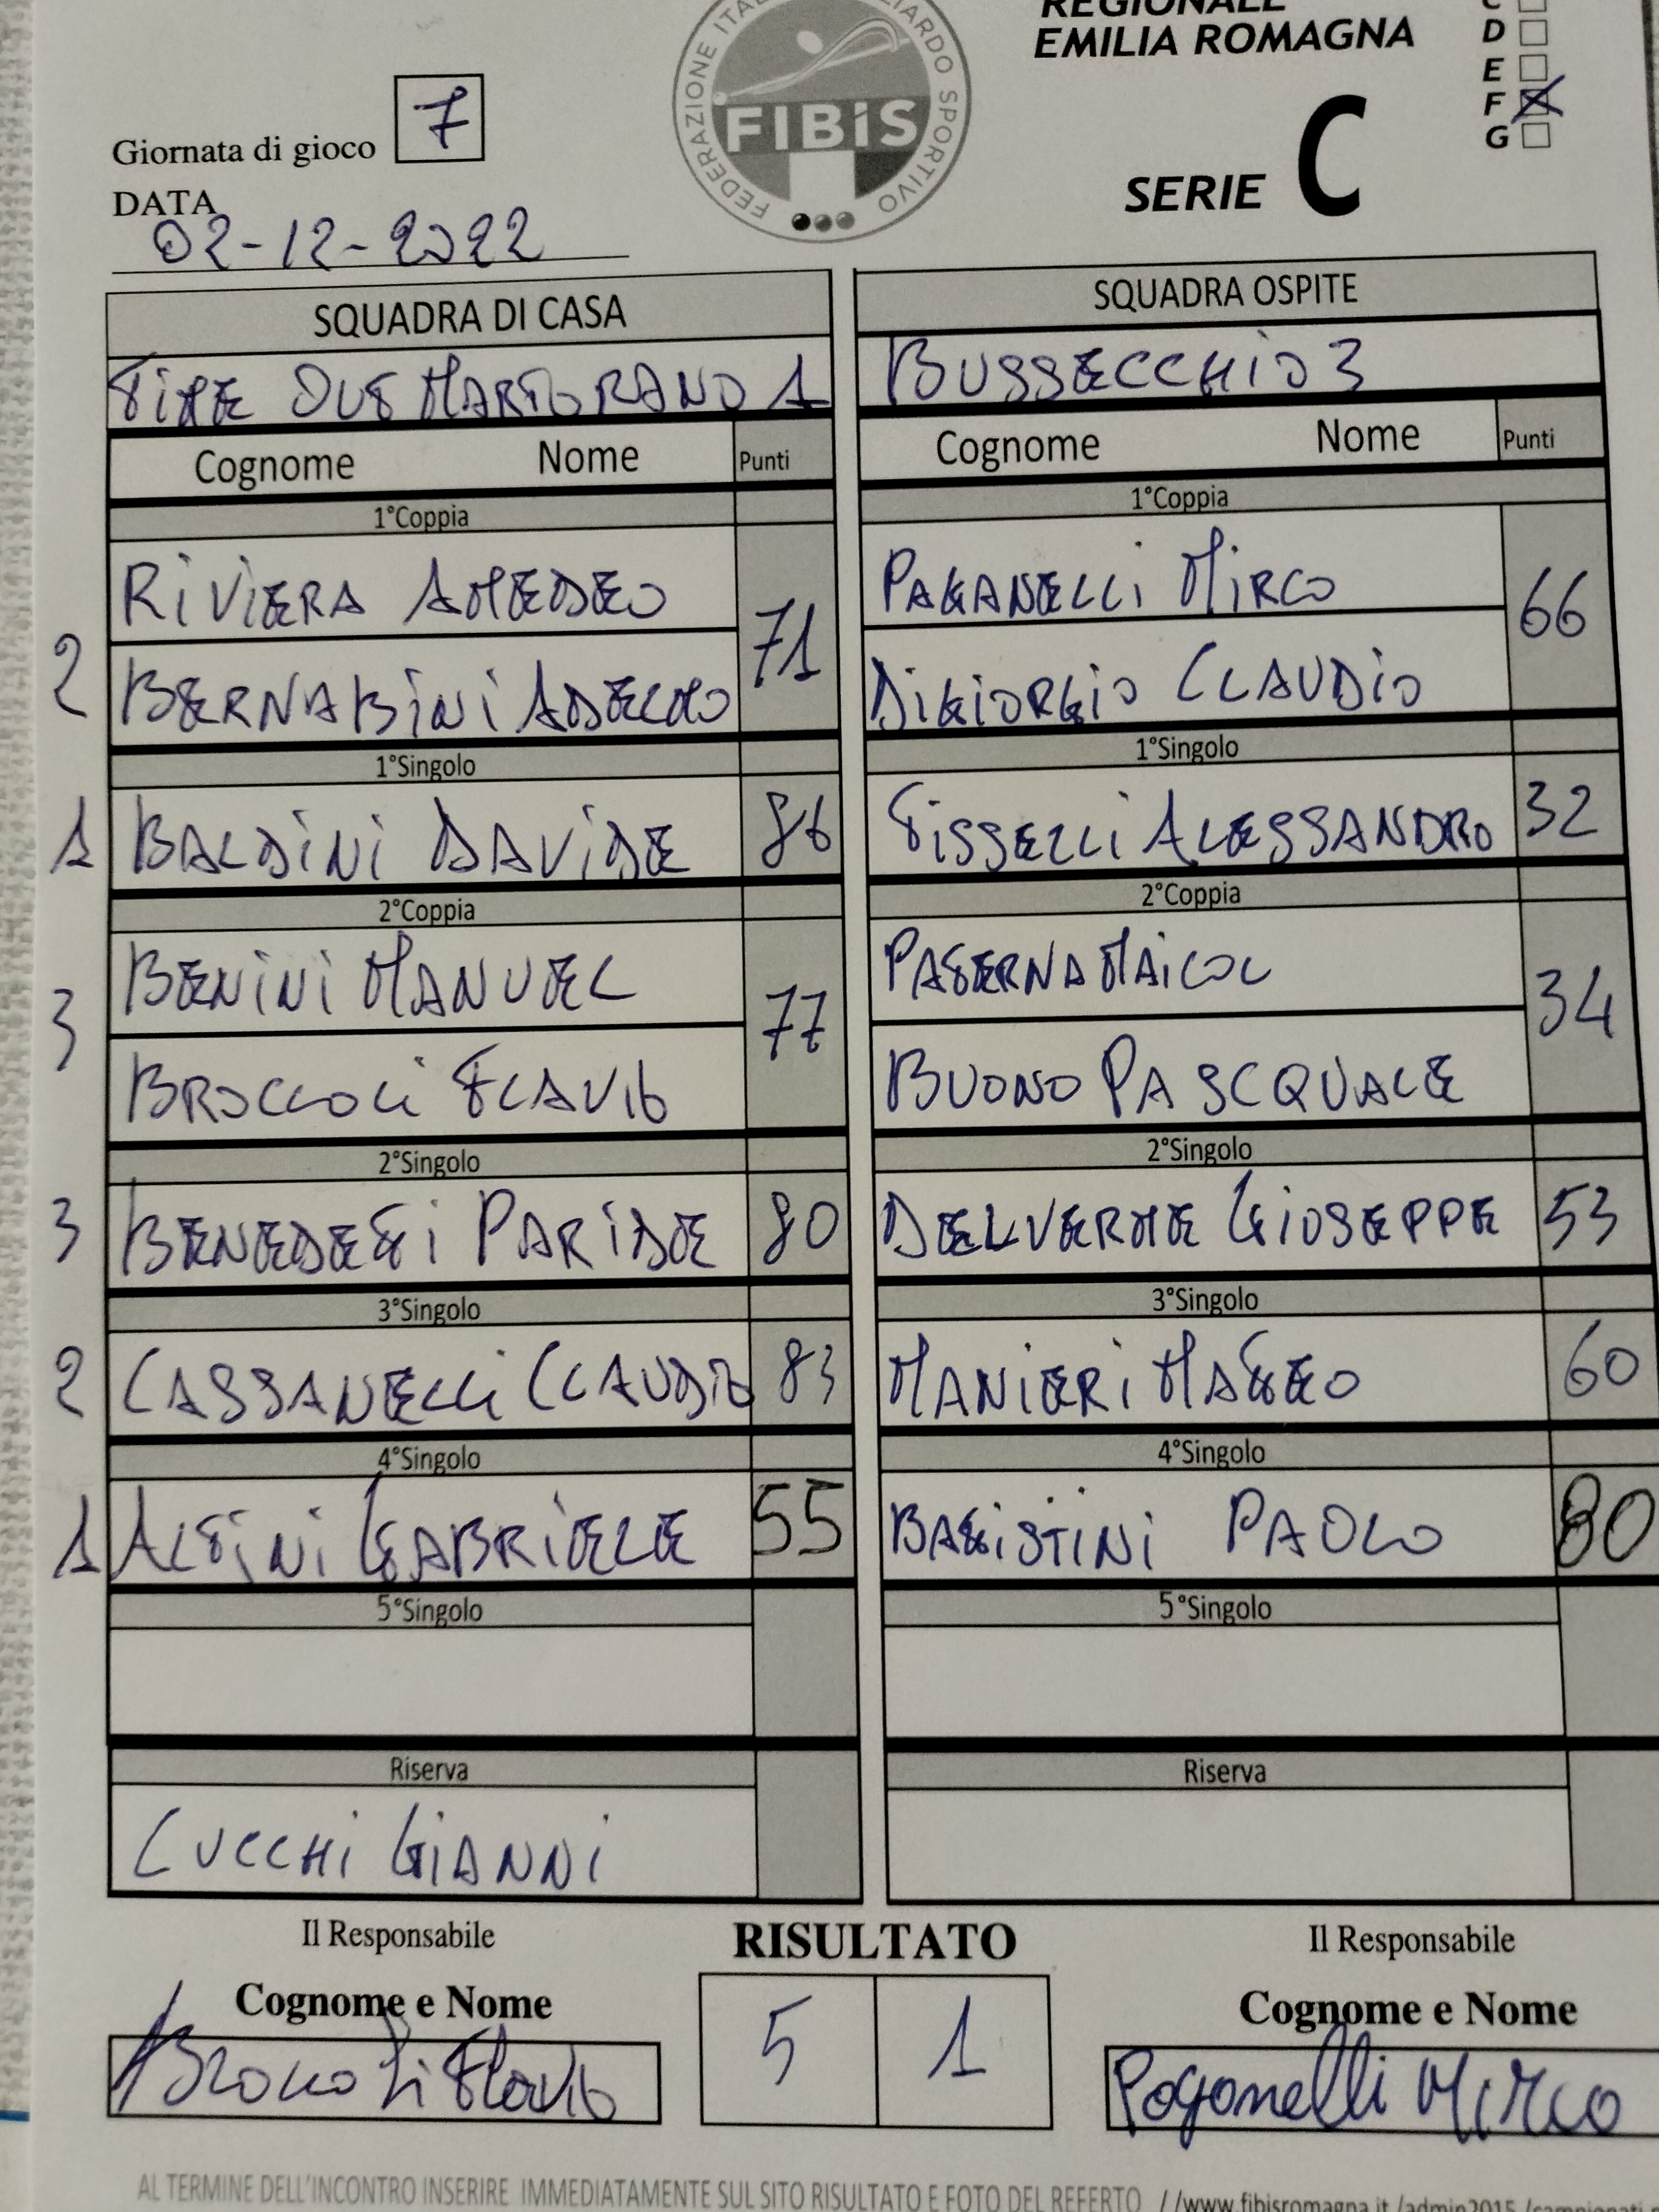 REGIONALE
EMILIA ROMAGNA
D
E
F
G
Giornata di gioco 7
DATA
02-12-2022
FEDERAZIONE ITALIARDO SPORTIVO
FIBiS
SERIE C
SQUADRA DI CASA
SQUADRA OSPITE
MARTORANO 1
BUSSECCHIO 3
Cognome Nome Punti
Cognome Nome Punti
1°Coppia
1°Coppia
RIVIERA AMEDEO
PAGANELLI MIRCO
2
71
66
BERNABINI ADELMO
DIGIORGIO CLAUDIO
1°Singolo
1°Singolo
1 BALDINI DAVIDE 86
FISSELLI ALESSANDRO 32
2°Coppia
2°Coppia
BENINI MANUEL
PATERNA MAICOL
3
77
34
BROCCOLI FLAVIO
BUONO PASCQUALE
2°Singolo
2°Singolo
3 BENEDETTI PARIDE 80
DELVERME GIOSEPPE 53
3°Singolo
3°Singolo
2 CASSANELLI CLAUDIO 83
MANIERI MATTEO 60
4°Singolo
4°Singolo
1 ALTINI GABRIELE 55
BATTISTINI PAOLO 80
5°Singolo
5°Singolo
Riserva
Riserva
CUCCHI GIANNI
Il Responsabile
RISULTATO
Il Responsabile
Cognome e Nome
5 1
Cognome e Nome
Broccoli Flavio
Paganelli Mirco
AL TERMINE DELL'INCONTRO INSERIRE IMMEDIATAMENTE SUL SITO RISULTATO E FOTO DEL REFERTO //www.fibisromagna.it/admin2015/campionati